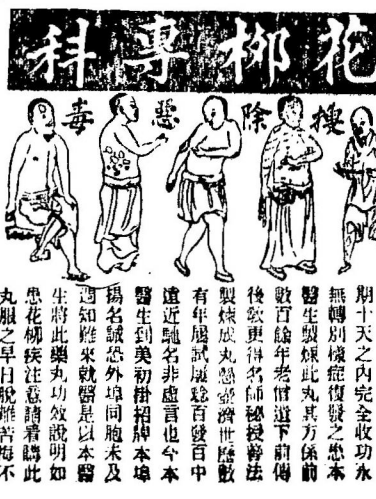 花柳專科
搜除惡毒
期十天之內完全收功永
無轉別樣症復發之患本
醫生製煉此丸其方係前
數百餘年老僧遺下前傳
後教更得名師秘授聲法
製煉成丸懸壺濟世歷數
有年屢試屢驗百發百中
遠近馳名非虛言也今本
醫生到美初掛招牌本埠
揚名誠恐外埠同胞未及
週知難來就醫是以本醫
生將此藥丸功效說明如
患花柳疾注意請看購此
丸服之早日脫離苦海不